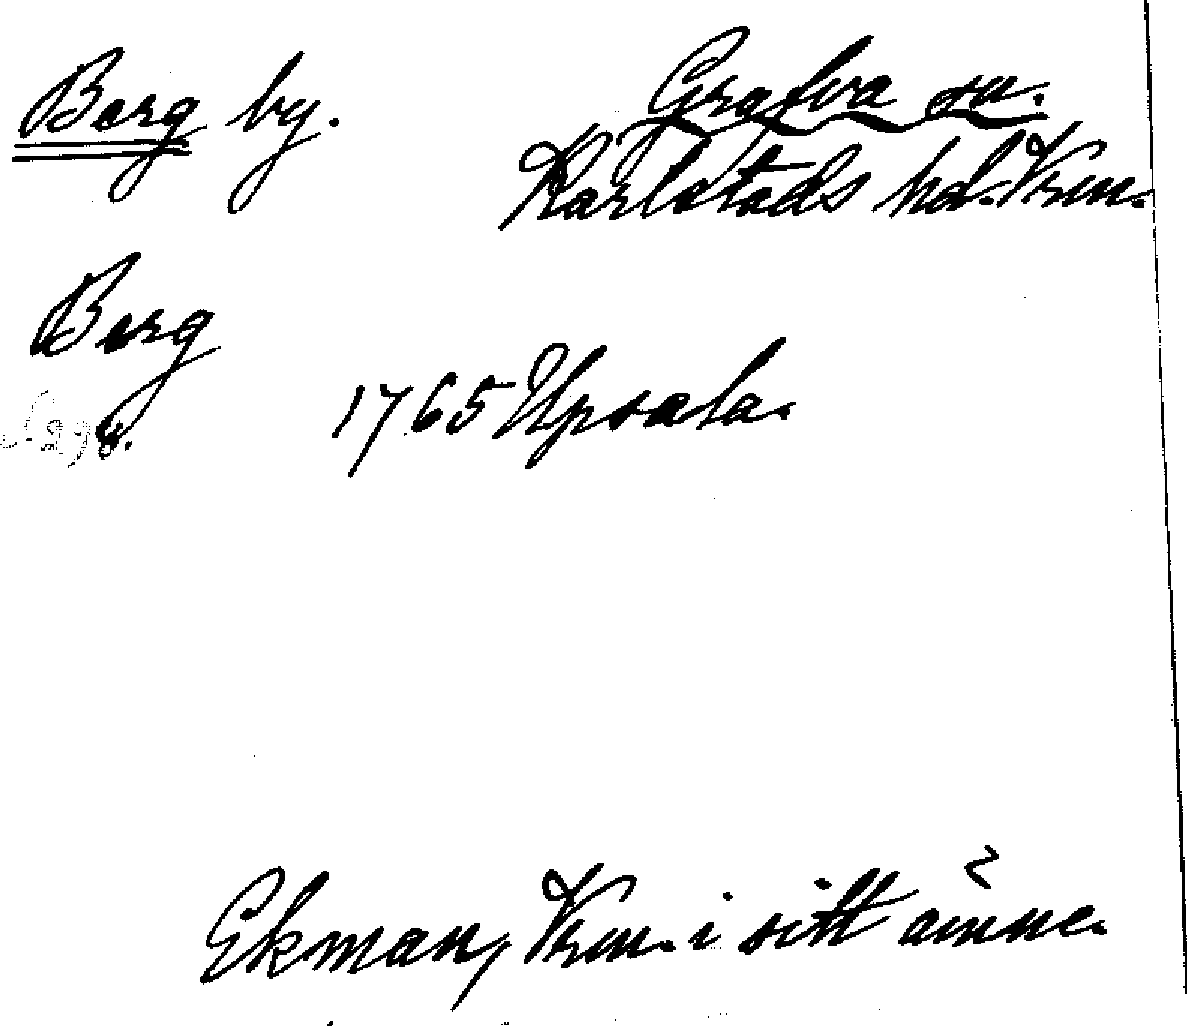 Berg by. Grafva sn.
Karlstads hd. Vrm.
Berg
1765 Upsala.
s. 298.
Ekman, Vrm. i sitt ämne.